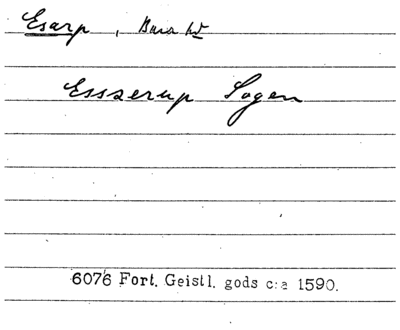 Esarp, Bara hd
Essserup Sogen
6076 Fort. Geistl. gods c:a 1590.